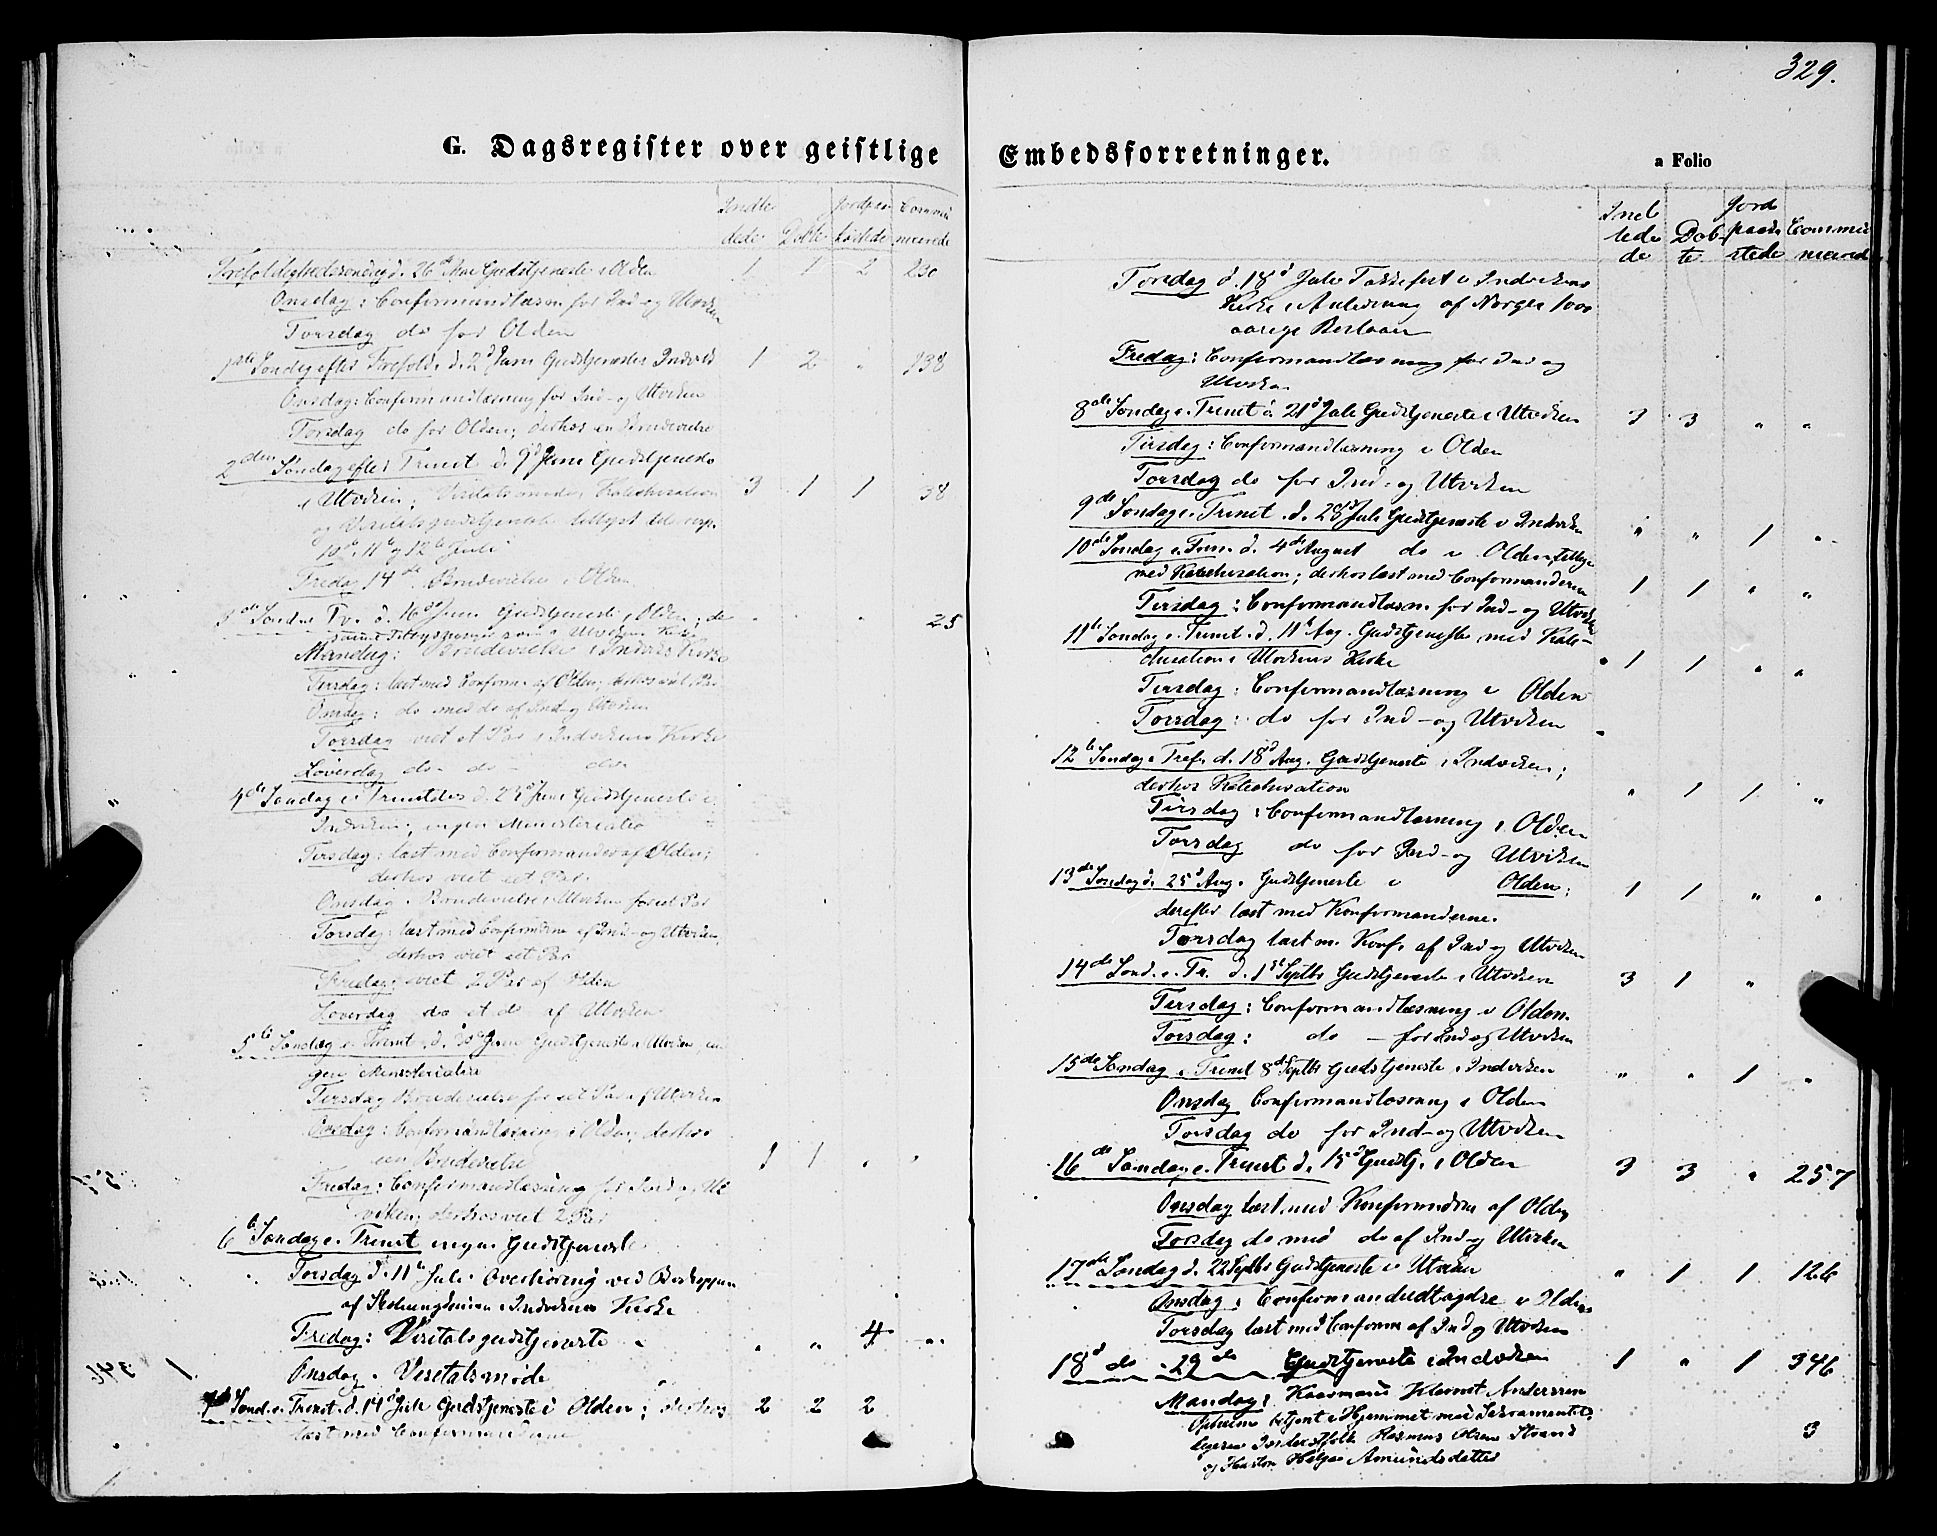 329.
G. Dagsregister over geistlige Embedsforretninger.
a Folio
Indle Jordpaa Commu
dede Døbte kastede nicerede
d. 26de Mai Gudstjeneste i Olden 1 1 2 230
Onsdag: Confirmandlæsn. for Ind- og Utviken
Torsdag do for Olden
1ste Søndag efter Trefold. d. 2d Juni Gudstjeneste i Indvik 1 2 " 138
Onsdag: Confirmandlæsning for Ind- og Utviken
Torsdag do for Olden; derhos en Brudevielse
2den Søndag efter Trinit. d. 9d Juni Gudstjeneste
i Utviken; Katechisation 3 1 1 38
og Visitatsgudstjeneste
10de, 11te og 12te Juli
Fredag 14de Brudevielse i Olden
3de Sønd. e. Tr. d. 16de Juni Gudstjeneste i Olden; de " " " 25
samme som i Utvikens Kirke
Mandag: Brudevielse i Indviks Kirke
Tirsdag: læst med Confirm. af Olden;
Onsdag: do med do af Ind- og Utviken
Torsdag viet et Par i Indvikens Kirke
Løverdag do - do -
4de Søndag e. Trinitatis d. 23d Juni Gudstjeneste i
Indviken; ingen Ministerialia
Tirsdag: læst med Confirmander af Olden;
derhos viet eet Par.
Onsdag. Brudevielse i Utviken for eet Par
Torsdag læst med Confirmdrne af Ind- og Utviken,
derhos viet eet Par
Fredag: viet 2 Par af Olden
Løverdag do et do af Utviken
5te Søndag e. Trinit. d. 30te Juni Gudstjeneste i Utviken, in-
gen Ministerialia
Tirsdag Brudevielse for eet Par af Utviken
Onsdag: Confirmandlæsning i Olden, derhos
een Brudevielse 1 1 " "
Fredag: Confirmandlæsning for Ind- og Ut
viken; derhos viet 2 Par
6te Søndag e. Trinit ingen Gudstjeneste
Torsdag d. 11te Juli Overhøring ved Biskoppen
af Skoleungdommen i Indvikens Kirke
Fredag: Visitatsgudstjeneste " " 4 "
Onsdag. Visitatsmøde
7de Sønd. e. Trinit. d. 14d Juli Gudstjeneste i Olden; derhos 2 2 2
læst med Confirmanderne
Ind Jord
lede Døb- paaka Commu
de te stede nicered
Torsdag d. 18d Juli Takkefest i Indvikens
Kirke i Anledning af Norges 1000
aarige Bestaaen
Fredag: Confirmandlæsning for Ind og
Utviken
8de Søndag e. Trinit d. 21d Juli Gudstjeneste i Utviken 3 3 " "
Tirsdag: Confirmandlæsning i Olden
Torsdag do for Ind- og Utviken
9de Søndag e. Trinit. d. 28d Juli Gudstjeneste i Indviken " " 1 "
10de Søndag e. Trin. d. 4de August do i Olden, tillige
med Katechisation; derhos læst med Confirmanderne 1 1 " "
Tirsdag: Confirmandlæsn. for Ind- og Utviken
11te Søndag e. Trinit. d. 11te Aug. Gudstjeneste med Kate-
chisation i Utvikens Kirke 1 1 " "
Tirsdag: Confirmandlæsning i Olden
Torsdag: do for Ind- og Utviken
12te Søndag e. Tref. d. 18d Aug. Gudstjeneste i Indviken;
derhos Katechisation " 1 1 "
Tirsdag: Confirmandlæsning i Olden
Torsdag do for Ind- og Utviken
13de Søndag d. 25d Aug. Gudstjeneste i Olden; 1 1 " "
derefter læst med Konfirmanderne.
Torsdag læst m. Konf. af Ind- og Utviken
14de Sønd. e. Tr. d. 1ste Septbr Gudstjeneste i Utviken 3 1 "
Tirsdag: Confirmandlæsning i Olden.
Torsdag: do - for Ind og Utviken
15de Søndag e. Trinit 8de Septbr Gudstjeneste i Indviken " " 1 "
Onsdag Confirmandlæsning i Olden
Torsdag do for Ind- og Utviken
16de Søndag e. Trinit d. 15d Gudstj. i Olden 3 3 " 257
Onsdag læst med Konfirmdrne af Olden
Torsdag do med do af Ind- og Utviken
17de Søndag d. 22 Septbr Gudstjeneste i Utviken " 1 1 126
Onsdag: Confirmandudtagelse i Olden
Torsdag læst med Confirm. af Ind og Utviken
18d do 29de Gudstjeneste i Indviken 1 " 1 346
Mandag: Huusmand Anderssen
betjent i Hjemmet med Sacramentet;
ligesaa Rasmus Olsen Strand 3
og Hustru Helga Amundsdatter